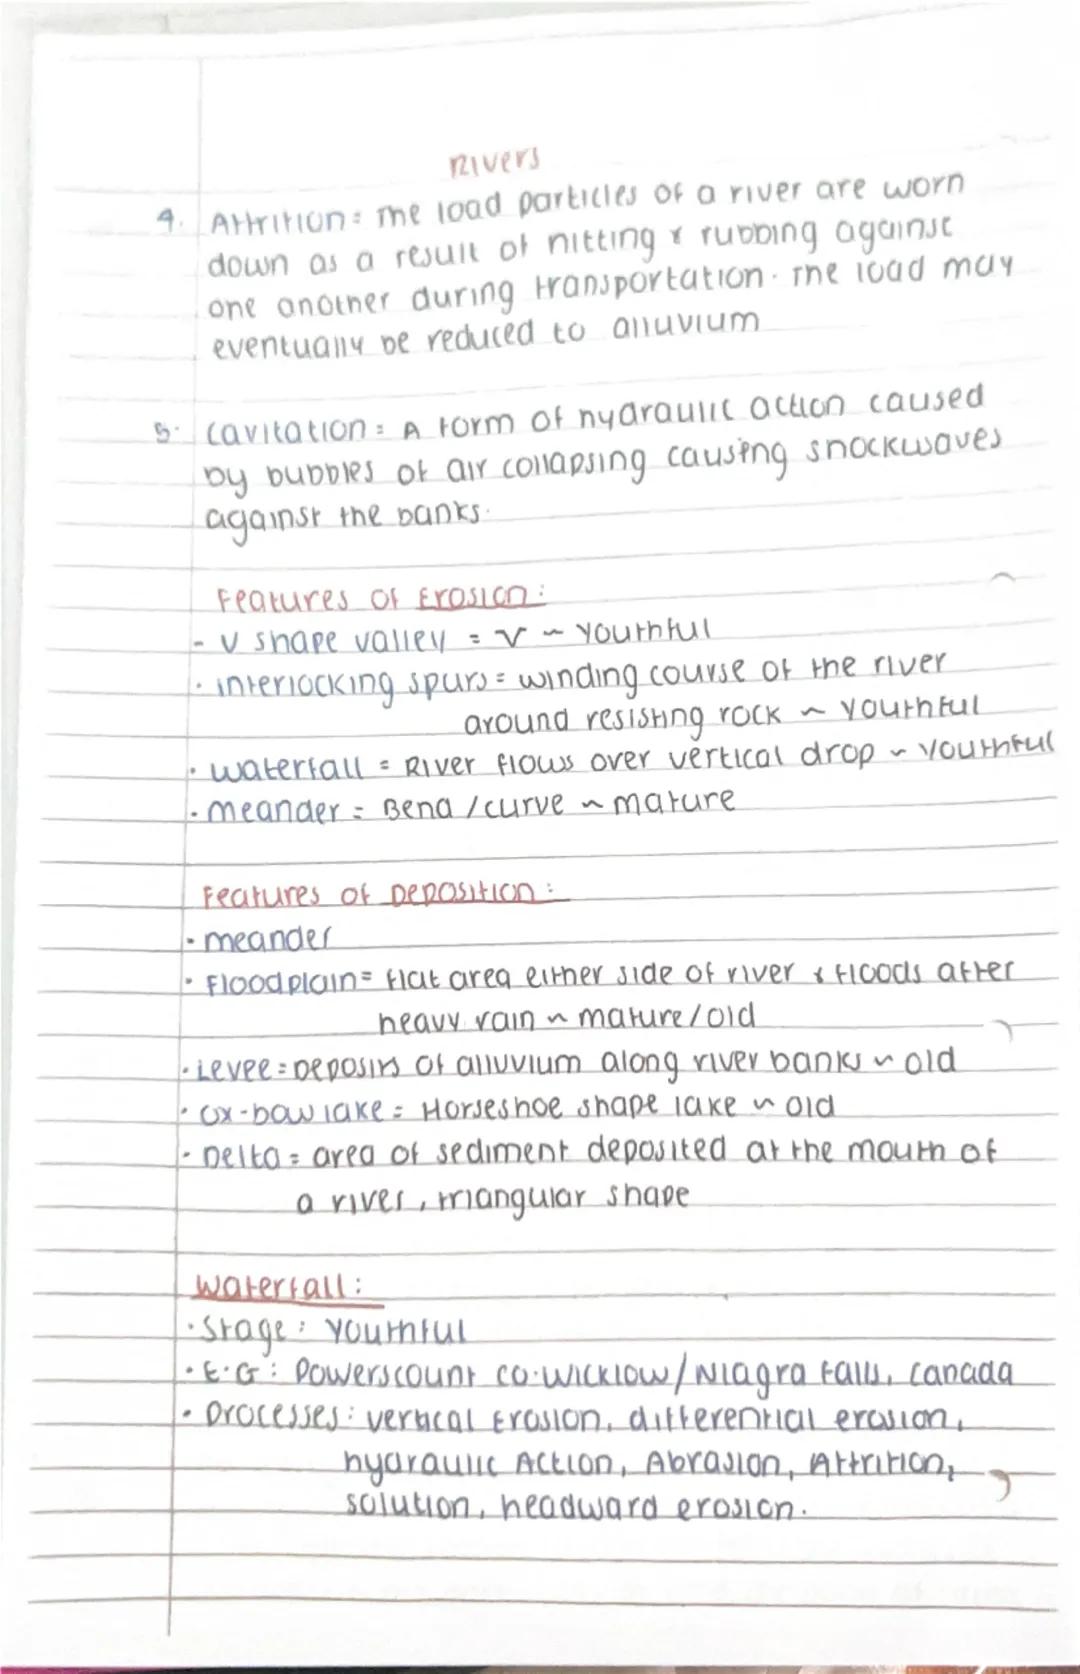 Rivers
4. Attrition: The load particles of a river are worn
down as a result of hitting & rubbing against
one another during transportation. The load may
eventually be reduced to alluvium
5. Cavitation: A form of hydraulic action caused
by bubbles of air collapsing causing shockwaves
against the banks.
Features of Erosion:
- V shape valley = V ~ Youthful
· interlocking spurs = winding course of the river
around resisting rock ~ Youthful
· waterfall = River flows over vertical drop ~ Youthful
· meander = Bend / curve ~ mature
Features of Deposition:
· meander
· Floodplain = flat area either side of river & floods after
heavy rain ~ mature/old
· Levee = Deposits of alluvium along river banks ~ old
· Ox-bow lake = Horseshoe shape lake ~ old
· Delta = area of sediment deposited at the mouth of
a river, triangular shape
Waterfall:
· Stage: Youthful
· E.G: Powerscount co. Wicklow / Niagra falls, Canada
· Processes: vertical Erosion, differential erosion,
hydraulic Action, Abrasion, Attrition,
solution, headward erosion.